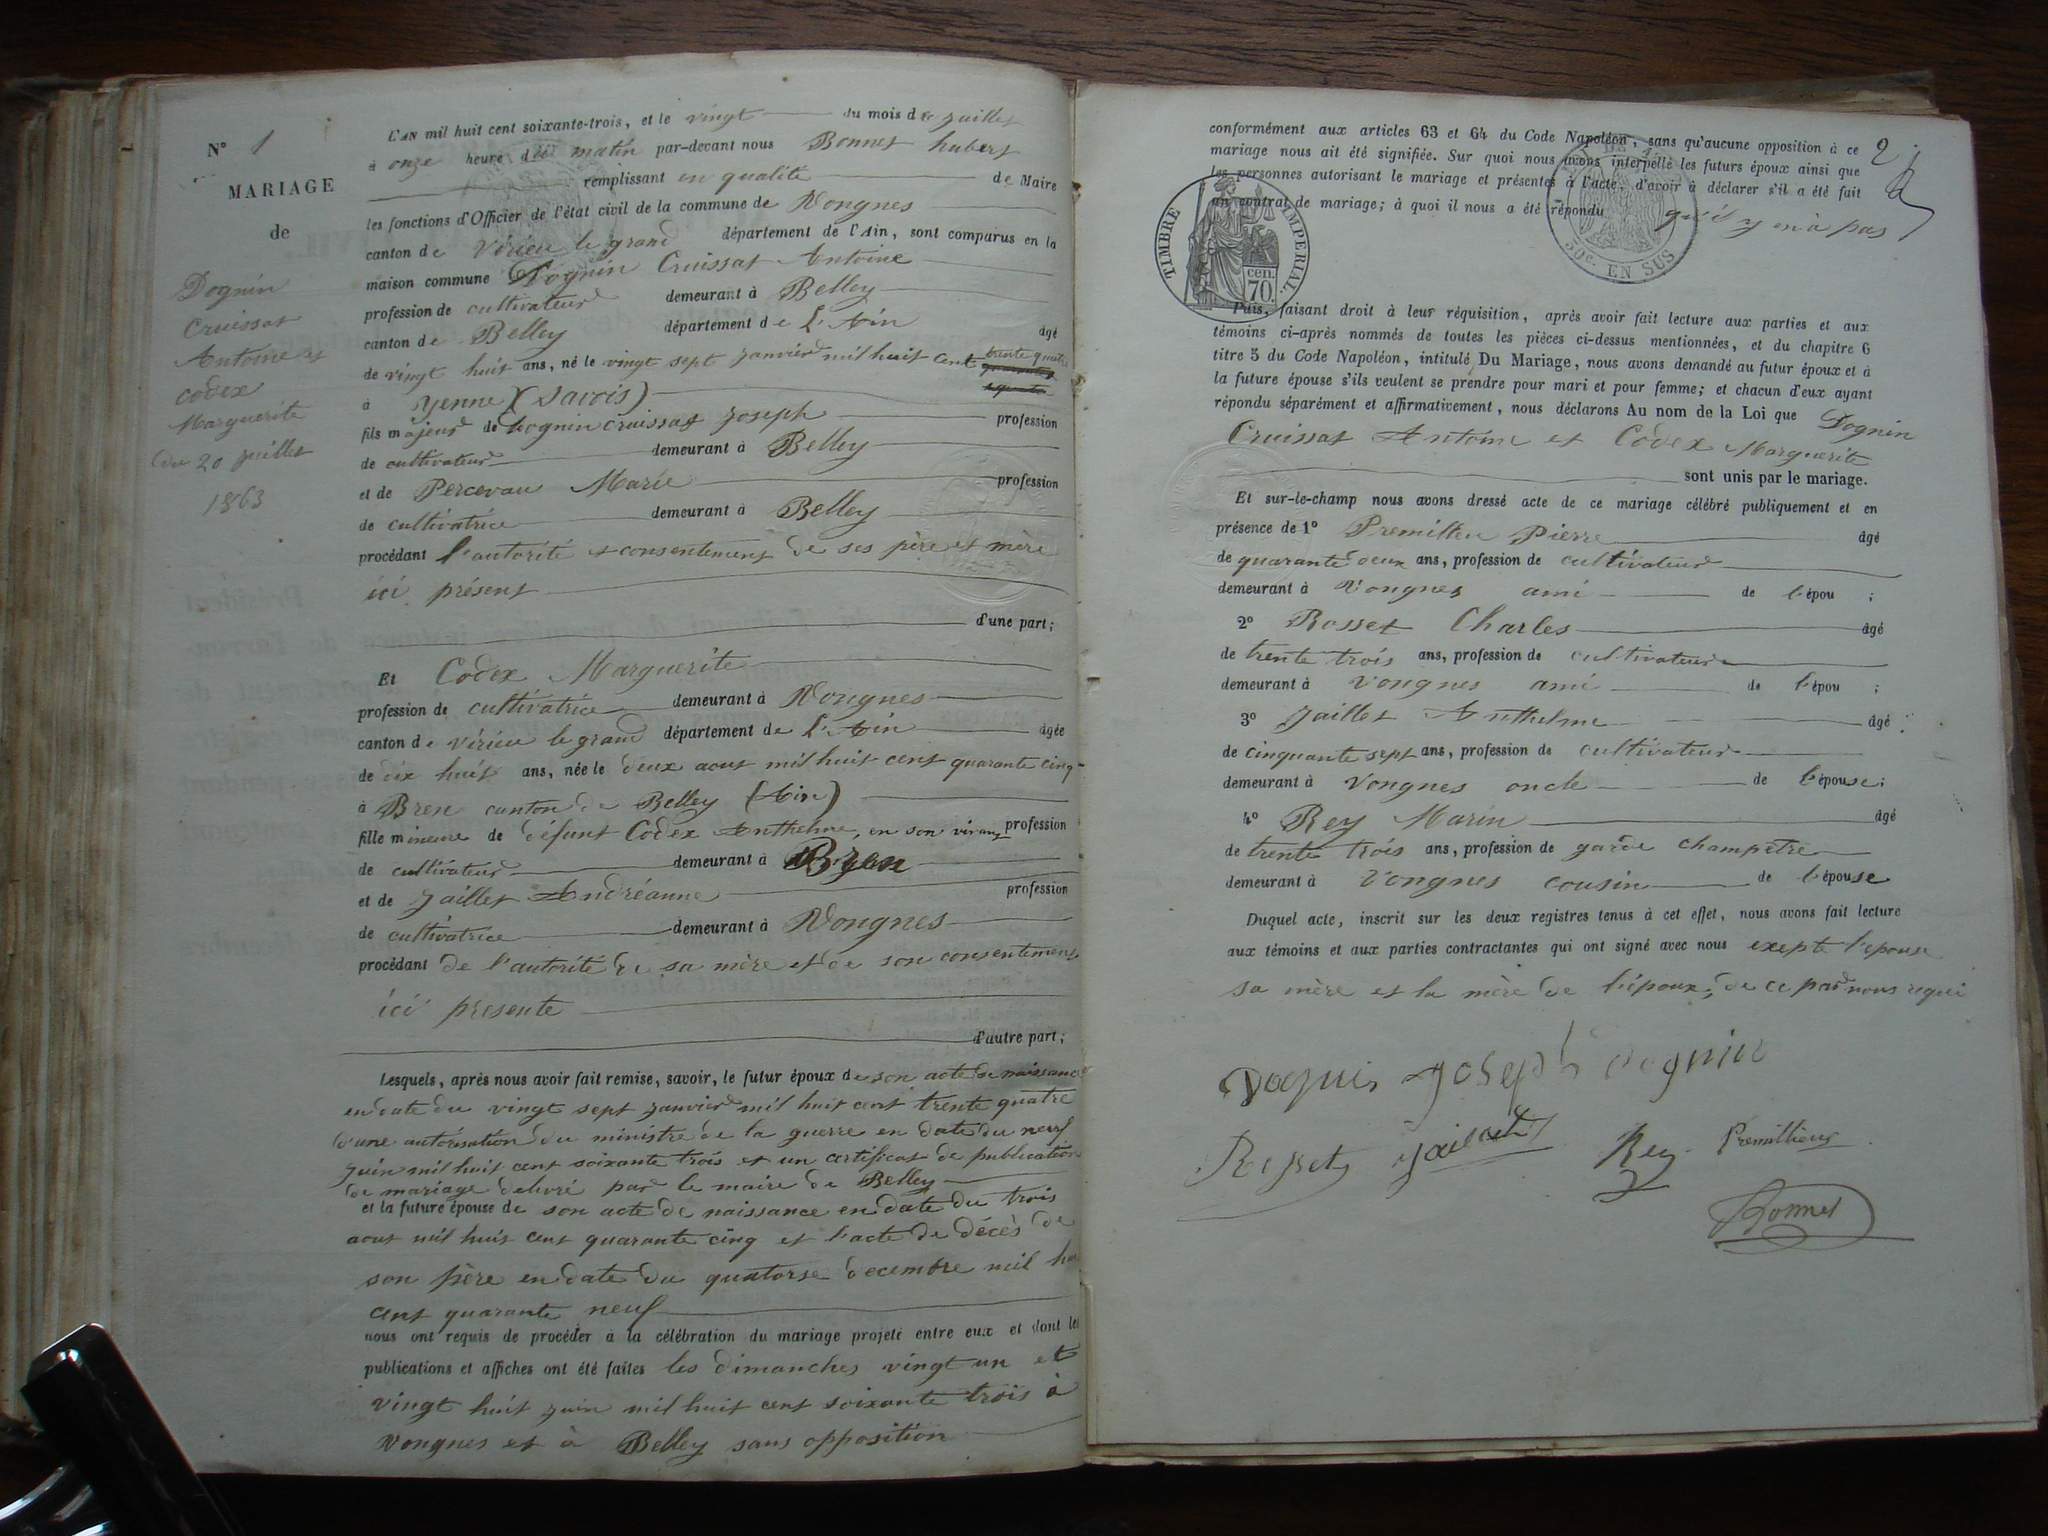 N° 1
MARIAGE
de
Dognin
Cruissat
Antoine et
Codex
Marguerite
du 20 juillet
1863
L'AN mil huit cent soixante-trois, et le vingt du mois de juillet
à onze heure du matin par-devant nous Bonnet hubert
remplissant en qualité de Maire
les fonctions d'Officier de l'état civil de la commune de Vongnes
canton de Virieu le grand département de l'Ain, sont comparus en la
maison commune Dognin Cruissat Antoine
profession de cultivateur demeurant à Belley
canton de Belley département de L'Ain âgé
de vingt huit ans, né le vingt sept janvier mil huit cent trente quatre
à Yenne (Savois)
fils majeur de Dognin Cruissat Joseph profession
de cultivateur demeurant à Belley
et de Percevau Marie profession
de cultivatrice demeurant à Belley
procédant l'autorité et consentement de ses père et mère
ici présent
d'une part;
Et Codex Marguerite
profession de cultivatrice demeurant à Vongnes
canton de Virieu le grand département de L'Ain âgée
de dix huit ans, née le deux aout mil huit cent quarante cinq
à Bren canton de Belley (Ain)
fille mineure de défunt Codex Anthelme, en son vivant profession
de cultivateur demeurant à Bren
et de Jaillet Andréanne profession
de cultivatrice demeurant à Vongnes
procédant de l'autorité de sa mère et de son consentement
ici presente
d'autre part;
Lesquels, après nous avoir fait remise, savoir, le futur époux de son acte de naissance
en date du vingt sept janvier mil huit cent trente quatre
d'une autorisation du ministre de la guerre en date du neuf
juin mil huit cent soixante trois et un certificat de publication
de mariage delivré par le maire de Belley
et la future épouse de son acte de naissance en date du trois
aout mil huit cent quarante cinq et l'acte de décès de
son père en date du quatorse decembre mil hui
cent quarante neuf
nous ont requis de procéder à la célébration du mariage projeté entre eux et dont les
publications et affiches ont été faites les dimanches vingt un et
vingt huit juin mil huit cent soixante trois à
Vongnes et à Belley sans opposition
2
conformément aux articles 63 et 64 du Code Napoléon, sans qu'aucune opposition à ce
mariage nous ait été signifiée. Sur quoi nous avons interpellé les futurs époux ainsi que
les personnes autorisant le mariage et présentes à l'acte, d'avoir à déclarer s'il a été fait
un contrat de mariage; à quoi il nous a été répondu qu'il y en à pas
TIMBRE IMPERIAL
70 cen.
50c. EN SUS
Puis, faisant droit à leur réquisition, après avoir fait lecture aux parties et aux
témoins ci-après nommés de toutes les pièces ci-dessus mentionnées, et du chapitre 6
titre 5 du Code Napoléon, intitulé Du Mariage, nous avons demandé au futur époux et à
la future épouse s'ils veulent se prendre pour mari et pour femme; et chacun d'eux ayant
répondu séparément et affirmativement, nous déclarons Au nom de la Loi que Dognin
Cruissat Antoine et Codex Marguerite
sont unis par le mariage.
Et sur-le-champ nous avons dressé acte de ce mariage célébré publiquement et en
présence de 1° Premillieu Pierre âgé
de quarante deux ans, profession de cultivateur
demeurant à Vongnes ami de l'épou ;
2° Rosset Charles âgé
de trente trois ans, profession de cultivateur
demeurant à Vongnes ami de l'épou ;
3° Jaillet Anthelme âgé
de cinquante sept ans, profession de cultivateur
demeurant à Vongnes oncle de l'épouse;
4° Rey Marin âgé
de trente trois ans, profession de garde champetre
demeurant à Vongnes cousin de l'épouse
Duquel acte, inscrit sur les deux registres tenus à cet effet, nous avons fait lecture
aux témoins et aux parties contractantes qui ont signé avec nous exepté l'epouse
sa mère et la mère de l'époux, de ce par nous requi
Joseph Dognin
Rosset Jaillet Rey Premillieux
Bonnet